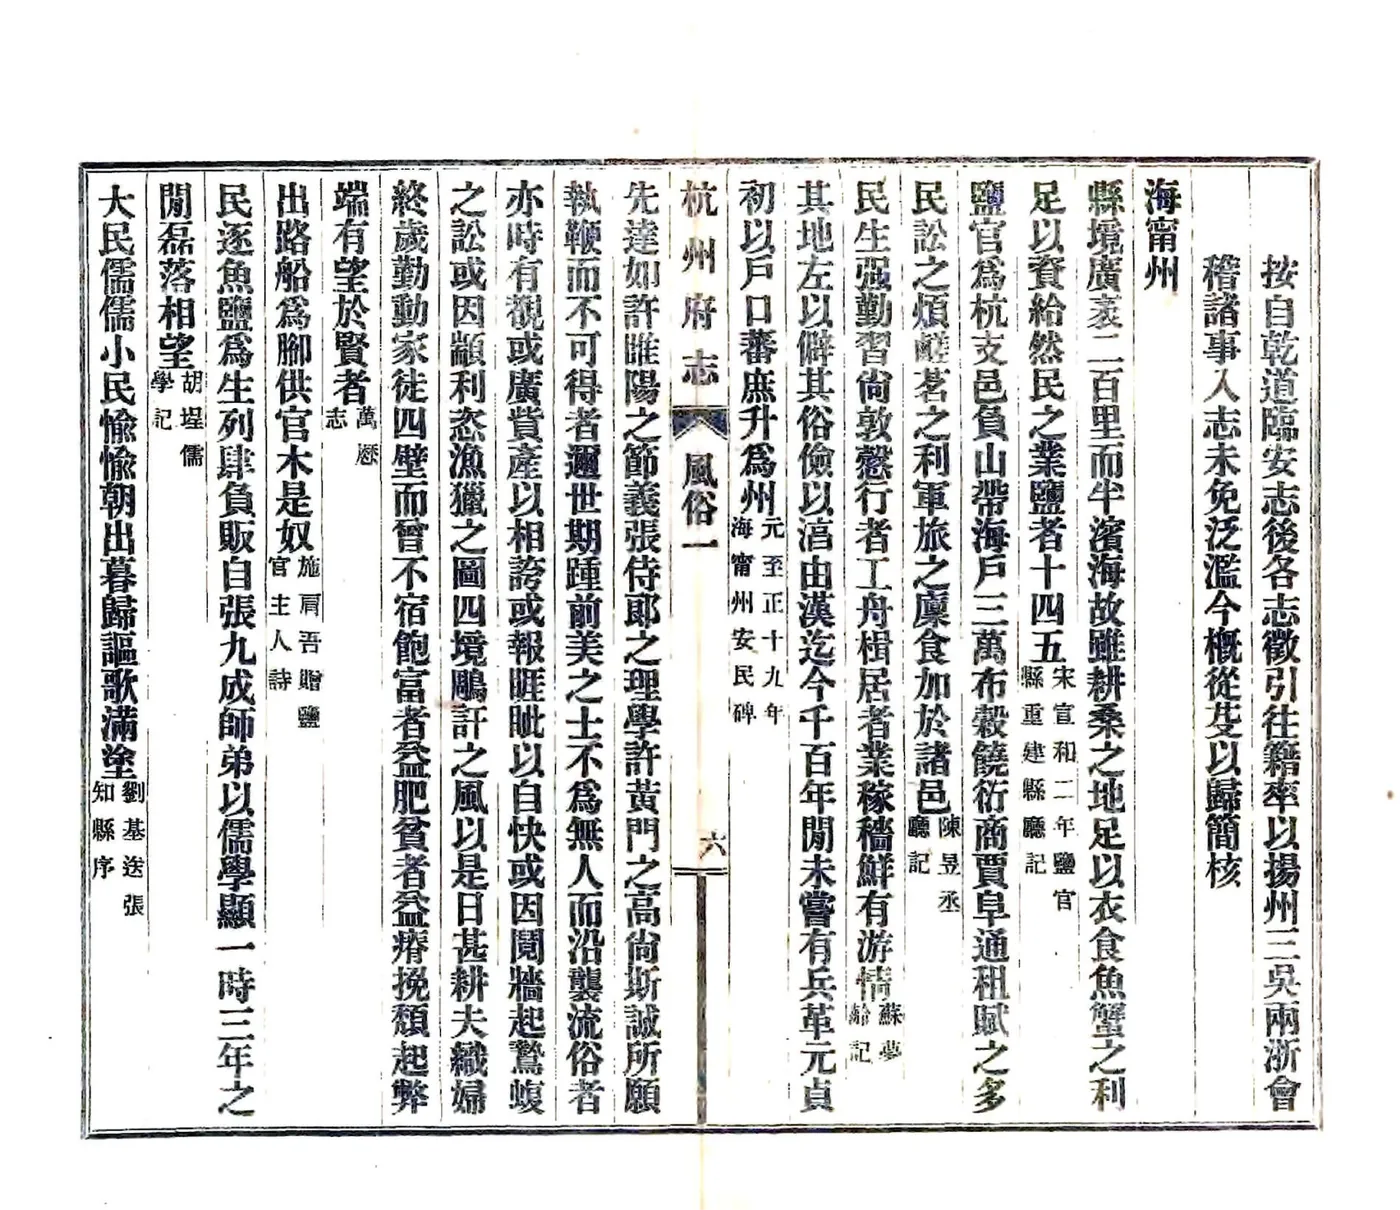 按自乾道臨安志後各志徵引往籍率以揚州三吳兩浙會
稽諸事入志未免泛濫今概從芟以歸簡核
海甯州
縣境廣袤二百里而半濱海故雖耕桑之地足以衣食魚蟹之利
足以資給然民之業鹽者十四五宋宣和二年鹽官縣重建縣廳記
鹽官為杭支邑負山帶海戶三萬布穀饒衍商賈阜通租賦之多
民訟之煩鹺茗之利軍旅之廩食加於諸邑陳昱丞廳記
民生强勤習尙敦慤行者工舟楫居者業稼穡鮮有游惰蘇夢齡記
其地左以僻其俗儉以湻由漢迄今千百年閒未嘗有兵革元貞
初以戶口蕃庶升為州元至正十九年海甯州安民碑
杭州府志 風俗一 六
先達如許睢陽之節義張侍郞之理學許黃門之高尙斯誠所願
執鞭而不可得者邇世期踵前美之士不為無人而沿襲流俗者
亦時有覩或廣貲產以相誇或報睚眦以自快或因鬩牆起鷙蝮
之訟或因顓利恣漁獵之圖四境鵰訐之風以是日甚耕夫織婦
終歲勤動家徒四壁而曾不宿飽富者益肥貧者益瘠挽頹起弊
端有望於賢者萬厯志
出路船為腳供官木是奴施肩吾贈鹽官主人詩
民逐魚鹽為生列肆負販自張九成師弟以儒學顯一時三年之
閒磊落相望胡埕儒學記
大民儒儒小民愉愉朝出暮歸謳歌滿塗劉基送張知縣序